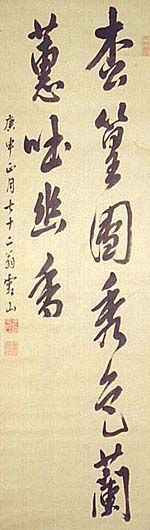 篁團秀色蘭
蕙吐幽香
庚申正月七十二翁雲山